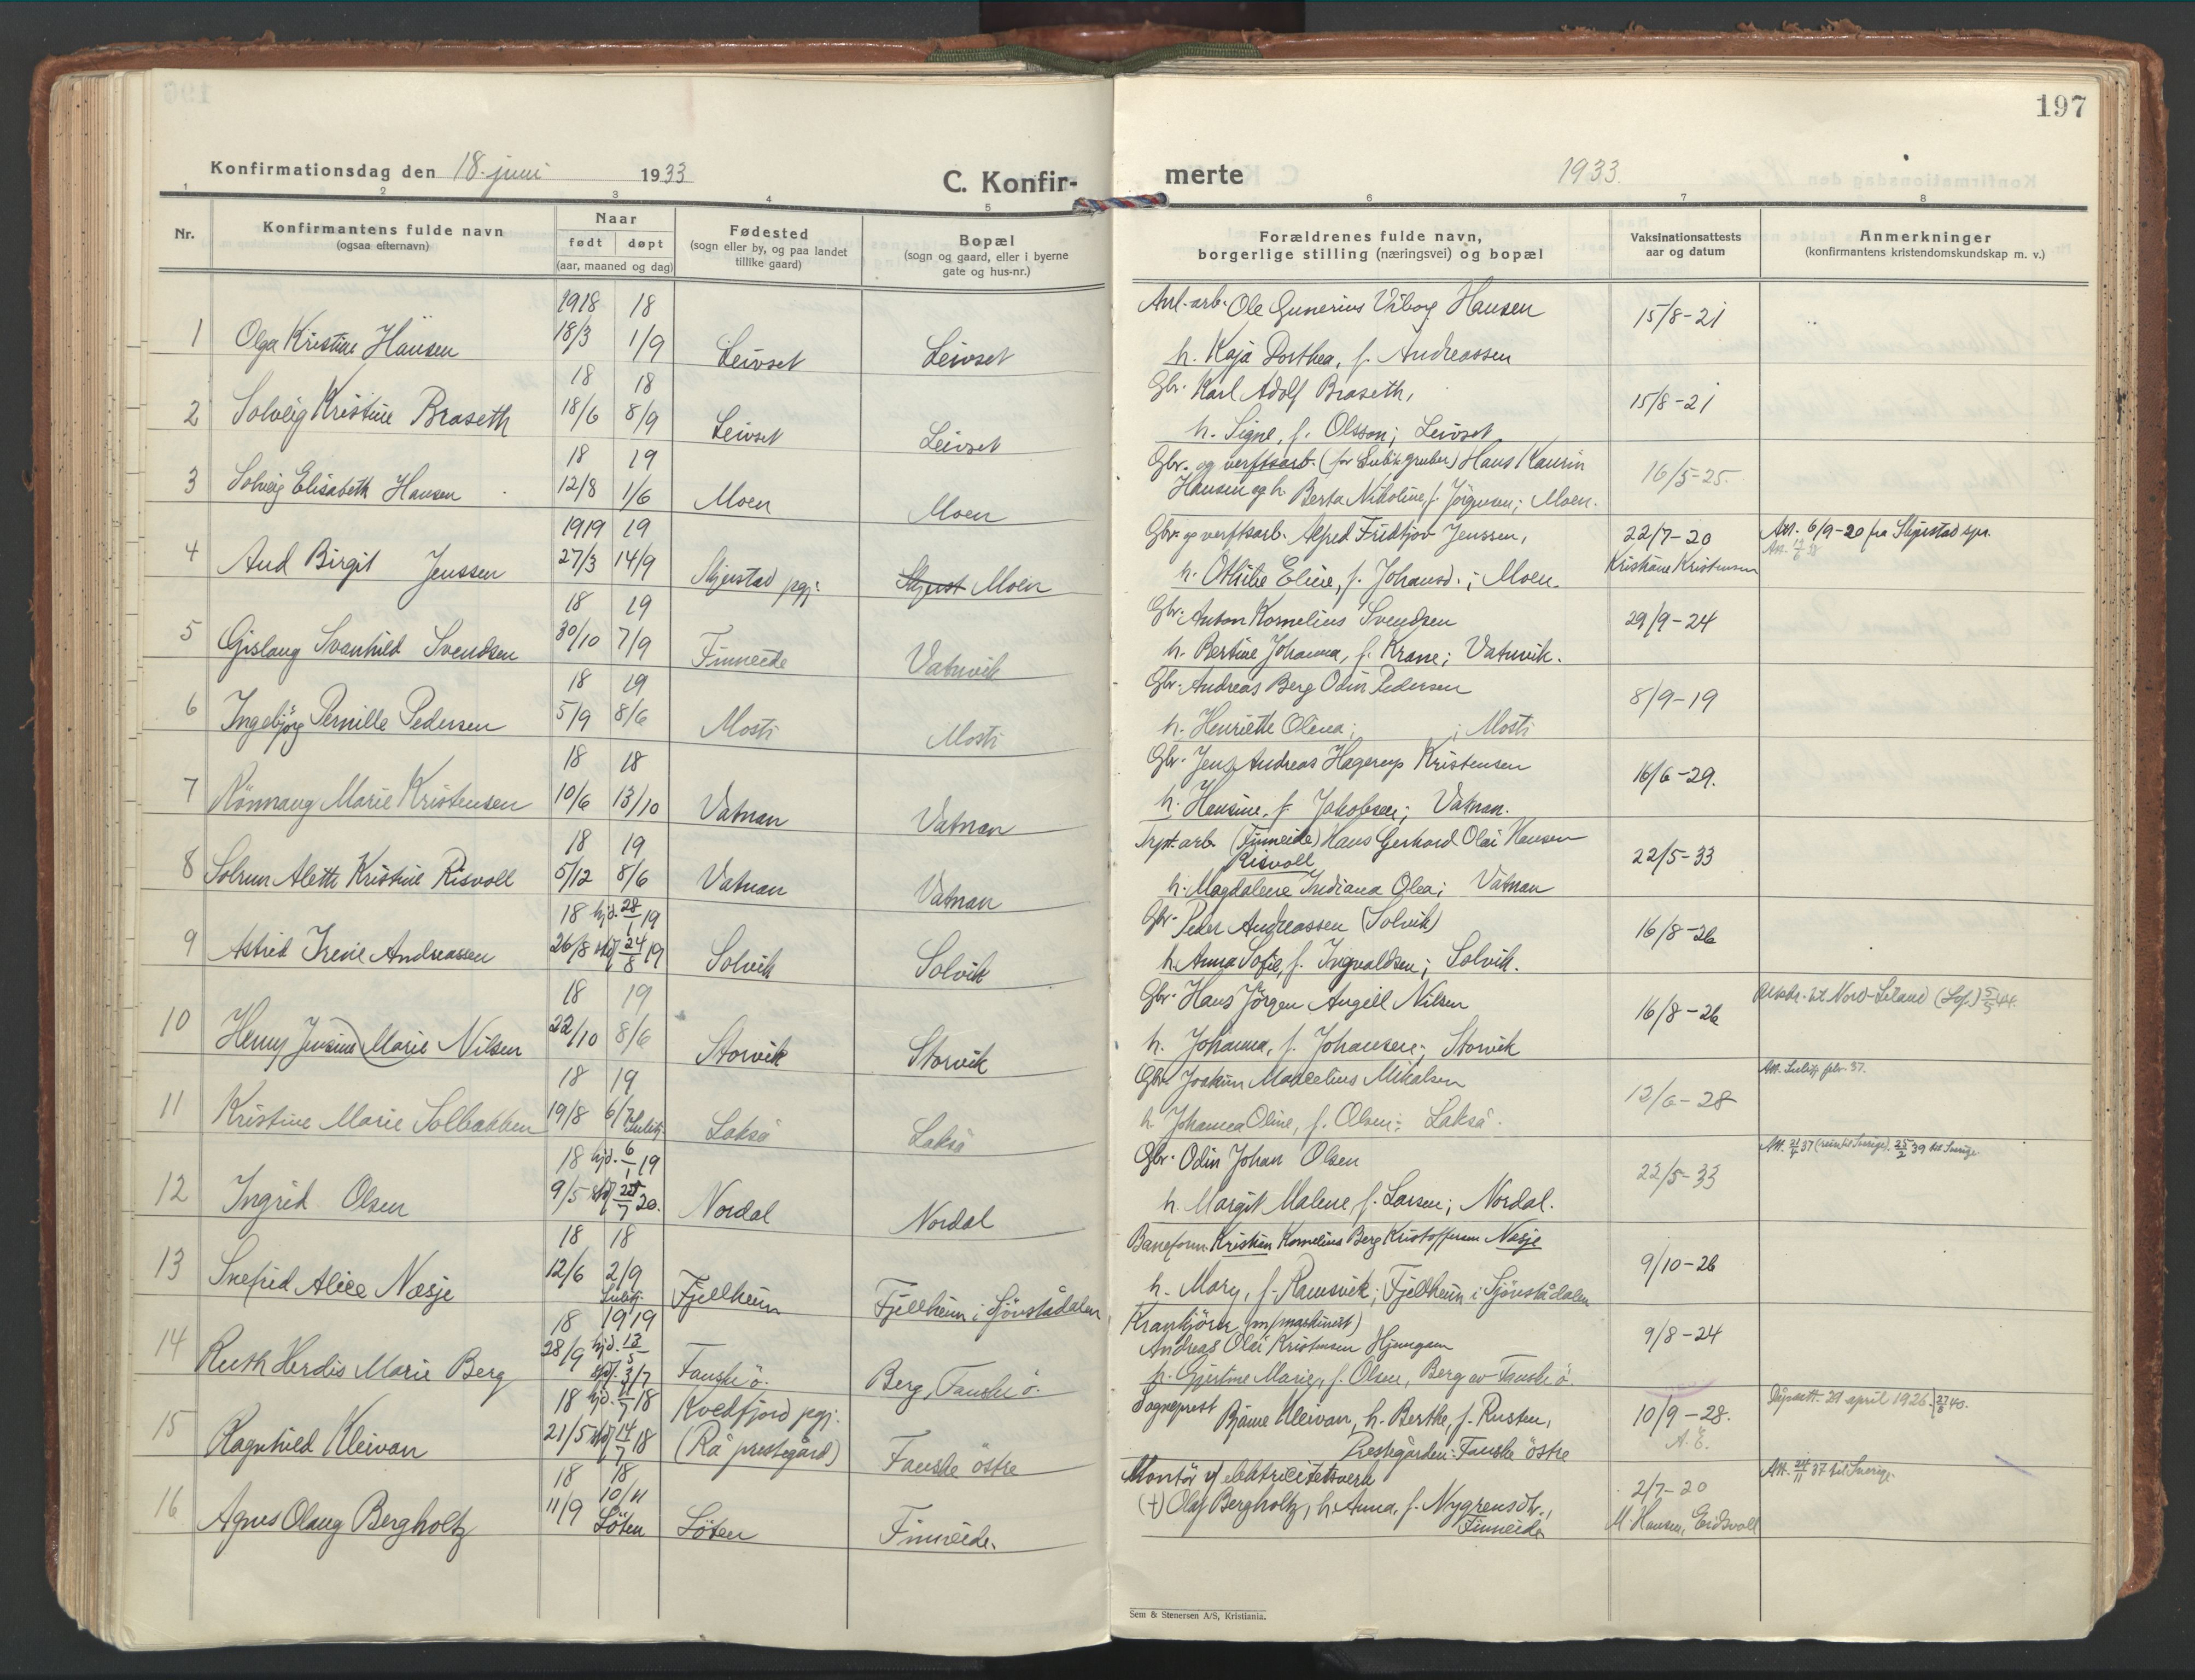 197
Konfirmationsdag den 18. juni 1933
C. Konfir-
merte
1933.
1 2 3 4 5 6 7 8
Nr.
Konfirmantens fulde navn
(ogsaa efternavn)
Naar
født døpt
(aar, maaned og dag)
Fødested
(sogn eller by, og paa landet
tillike gaard)
Bopæl
(sogn og gaard, eller i byerne
gate og hus-nr.)
Forældrenes fulde navn,
borgerlige stilling (næringsvei) og bopæl
Vaksinationsattests
aar og datum
Anmerkninger
(konfirmantens kristendomskundskap m. v.)
1918 18
1 Olga Kristine Hansen 18/3 1/9 Leivset Leivset
Anl.-arb. Ole Gunerius Viborg Hansen
h. Kaja Dorthea, f. Andreassen
15/8-21
18 18
2 Solveig Kristine Braseth 18/6 8/9 Leivset Leivset
Gbr. Karl Adolf Braseth,
h. Signe, f. Olsson; Leivset
15/8-21
18 19
3 Solveig Elisabeth Hansen 12/8 1/6 Moen Moen
Gbr. og verftsarb. (for Sulit. gruber) Hans Kaurin
Hansen og h. Berta Nikoline, f. Jörgensen; Moen.
16/5-25.
1919 19
4 Aud Birgit Jenssen 27/3 14/9 Skjerstad pgj. Skjerst Moen
Gbr. og verftsarb. Alfred Fridtjov Jenssen,
h. Othilie Eline, f. Johansd.; Moen.
22/7-20
Kristiane Kristensen
Att. 6/9-20 fra Skjerstad spr.
18 19
5 Gislaug Svanhild Svendsen 30/10 7/9 Finneide Vatnvik
Gbr. Anton Kornelius Svendsen
h. Bertine Johanna, f. Krane; Vatnvik.
29/9-24
18 19
6 Ingebjørg Pernille Pedersen 5/9 8/6 Mosti Mosti
Gbr. Andreas Berg Odin Pedersen
h. Henriette Olena; ; Mosti
8/9-19
18 18
7 Rönnaug Marie Kristensen 10/6 13/10 Vatnan Vatnan
Gbr. Jens Andreas Hagerup Kristensen
h. Hansine, f. Jakobsen; Vatnan.
16/6-29.
18 19
8 Solrun Alette Kristine Risvoll 5/12 8/6 Vatnan Vatnan
arb. (Finneide) Hans Gerhard Olai Hansen
Risvoll
h. Magdalene Indiana Olea; Vatnan
22/5-33
18 hjd. 28/1 19
9 Astrid Irene Andreassen 26/8 stf. 24/8 19 Solvik Solvik
Gbr. Peder Andreassen (Solvik)
h. Anna Sofie, f. Ingvaldsen; Solvik.
16/8-26
18 19
10 Henny Jensine Marie Nilsen 22/10 8/6 Storvik Storvik
Gbr. Hans Jörgen Angell Nilsen
h. Johanna, f. Johansen; Storvik
16/8-26
18 19
11 Kristine Marie Solbakken 19/8 6/7 Sulitj. Lakså Lakså
Gbr. Joakim Marcelius Mikalsen
h. Johanna Oline, f. Olsen; Lakså.
12/6-28
Att. Sulitj. febr. 37.
18 hjd. 6/1 19
12 Ingrid Olsen 9/5 stf. 25/7 20. Nordal Nordal
Gbr. Odin Johan Olsen
h. Margit Malene f. Larsen; Nordal.
22/5-33
Att. 21/4 37 (reise til Sverige). 25/2 39 til Sverige
18 18
13 Snefrid Alice Næsje 12/6 2/9 Sulitj. Fjellheim Fjellheim i Sjönstådalen
Baneform. Kristian Kornelius Berg Kristoffersen Næsje
h. Mary, f. Ramsvik; Fjellheim i Sjönstådalen
9/10-26
18 1919
14 Ruth Herdis Marie Berg 28/9 hjd. 13/5 stf. 3/7 Fauske ö. Berg, Fauske ö.
Krankjörer (m/maskinist)
Andreas Olai Kristensen
h. Gjertine Marie, f. Olsen, Berg av Fauske ö.
9/8-24
18 hjd. 11/7 18
15 Ragnhild Kleivan 21/5 stf. 14/7 18 Kvedfjord pgj. (Rå prestegård) Fauske östre
Sogneprest Bjarne Kleivan, h. Berthe, f. Rusten,
Prestegården: Fauske östre
10/9-28.
A. E.
Dåpsatt. 29 april 1926.
18 18
16 Agnes Olaug Bergholtz 11/9 10/11 Löten Löten Finneide.
Montör v/ elektricitetsverk
(+) Olaf Bergholtz, h. Anna, f. Nygrensdtr.,
Finneide
2/7-20
M. Hansen, Eidsvoll
Att. 24/11 37 til Sverige.
Sem & Stenersen A/S, Kristiania.